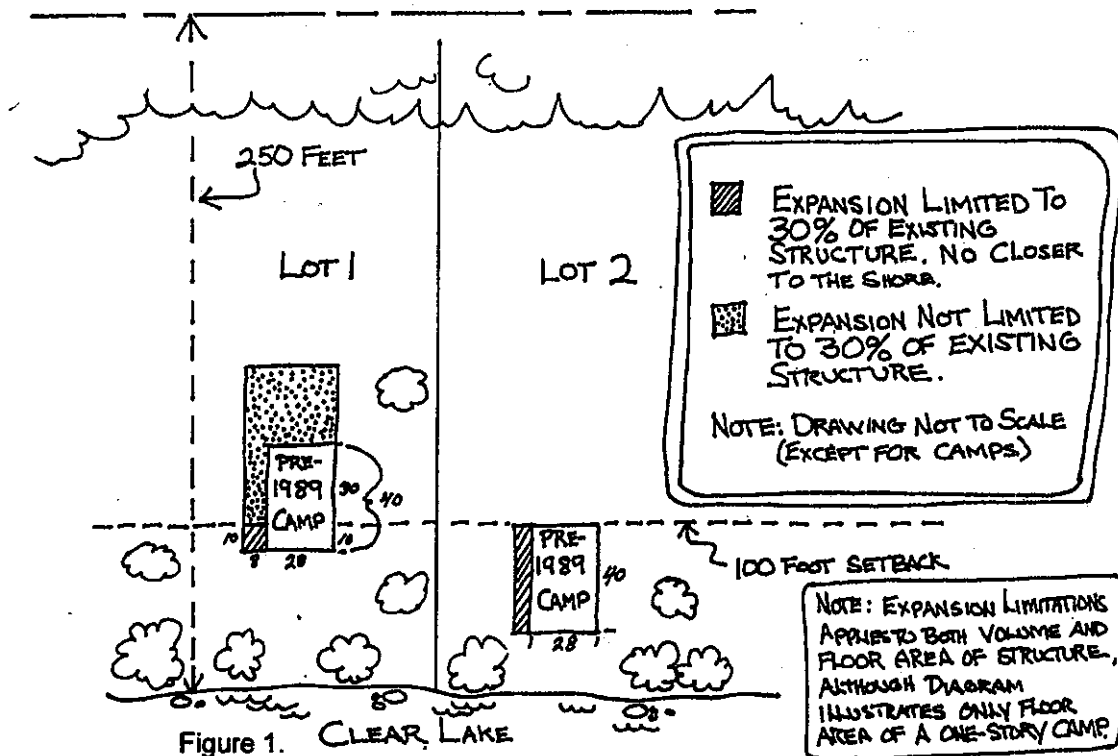 250 FEET
LOT 1
LOT 2
EXPANSION LIMITED TO
30% OF EXISTING
STRUCTURE. NO CLOSER
TO THE SHORE.
EXPANSION NOT LIMITED
TO 30% OF EXISTING
STRUCTURE.
NOTE: DRAWING NOT TO SCALE
(EXCEPT FOR CAMPS)
PRE-
1989
CAMP
30
40
10
8
28
10
PRE-
1989
CAMP
40
28
100 FOOT SETBACK
NOTE: EXPANSION LIMITATIONS
APPLIES TO BOTH VOLUME AND
FLOOR AREA OF STRUCTURE,
ALTHOUGH DIAGRAM
ILLUSTRATES ONLY FLOOR
AREA OF A ONE-STORY CAMP.
Figure 1.
CLEAR LAKE